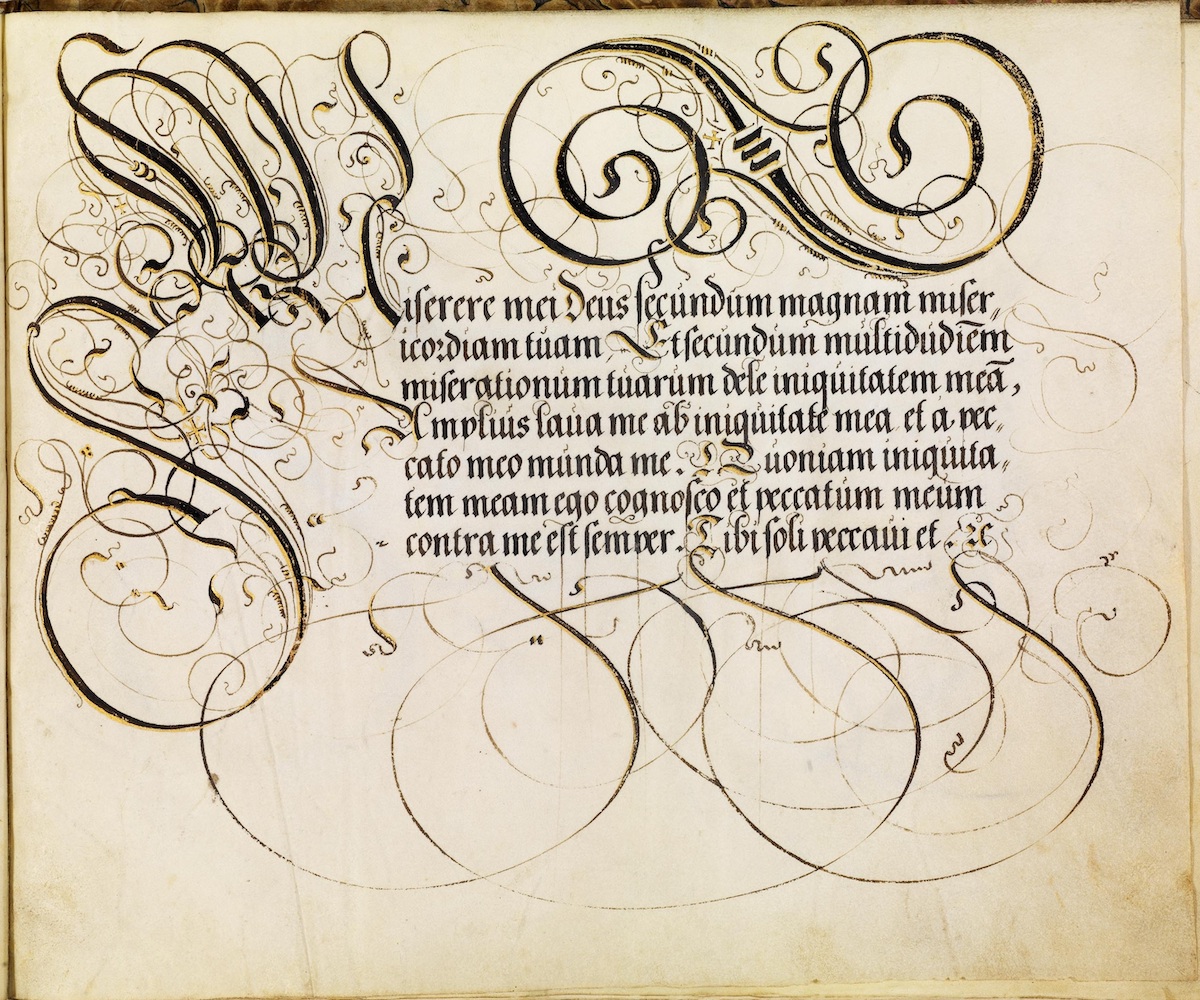 Miserere mei Deus secundum magnam miser,,
icordiam tuam, Et secundum multidudiēm
miserationum tuarum dele iniquitatem meā,
Amplius laua me ab iniquitate mea et a pec,,
cato meo munda me. Quoniam iniquita,,
tem meam ego cognosco et peccatum meum
contra me est semper. Tibi soli peccaui et. &c